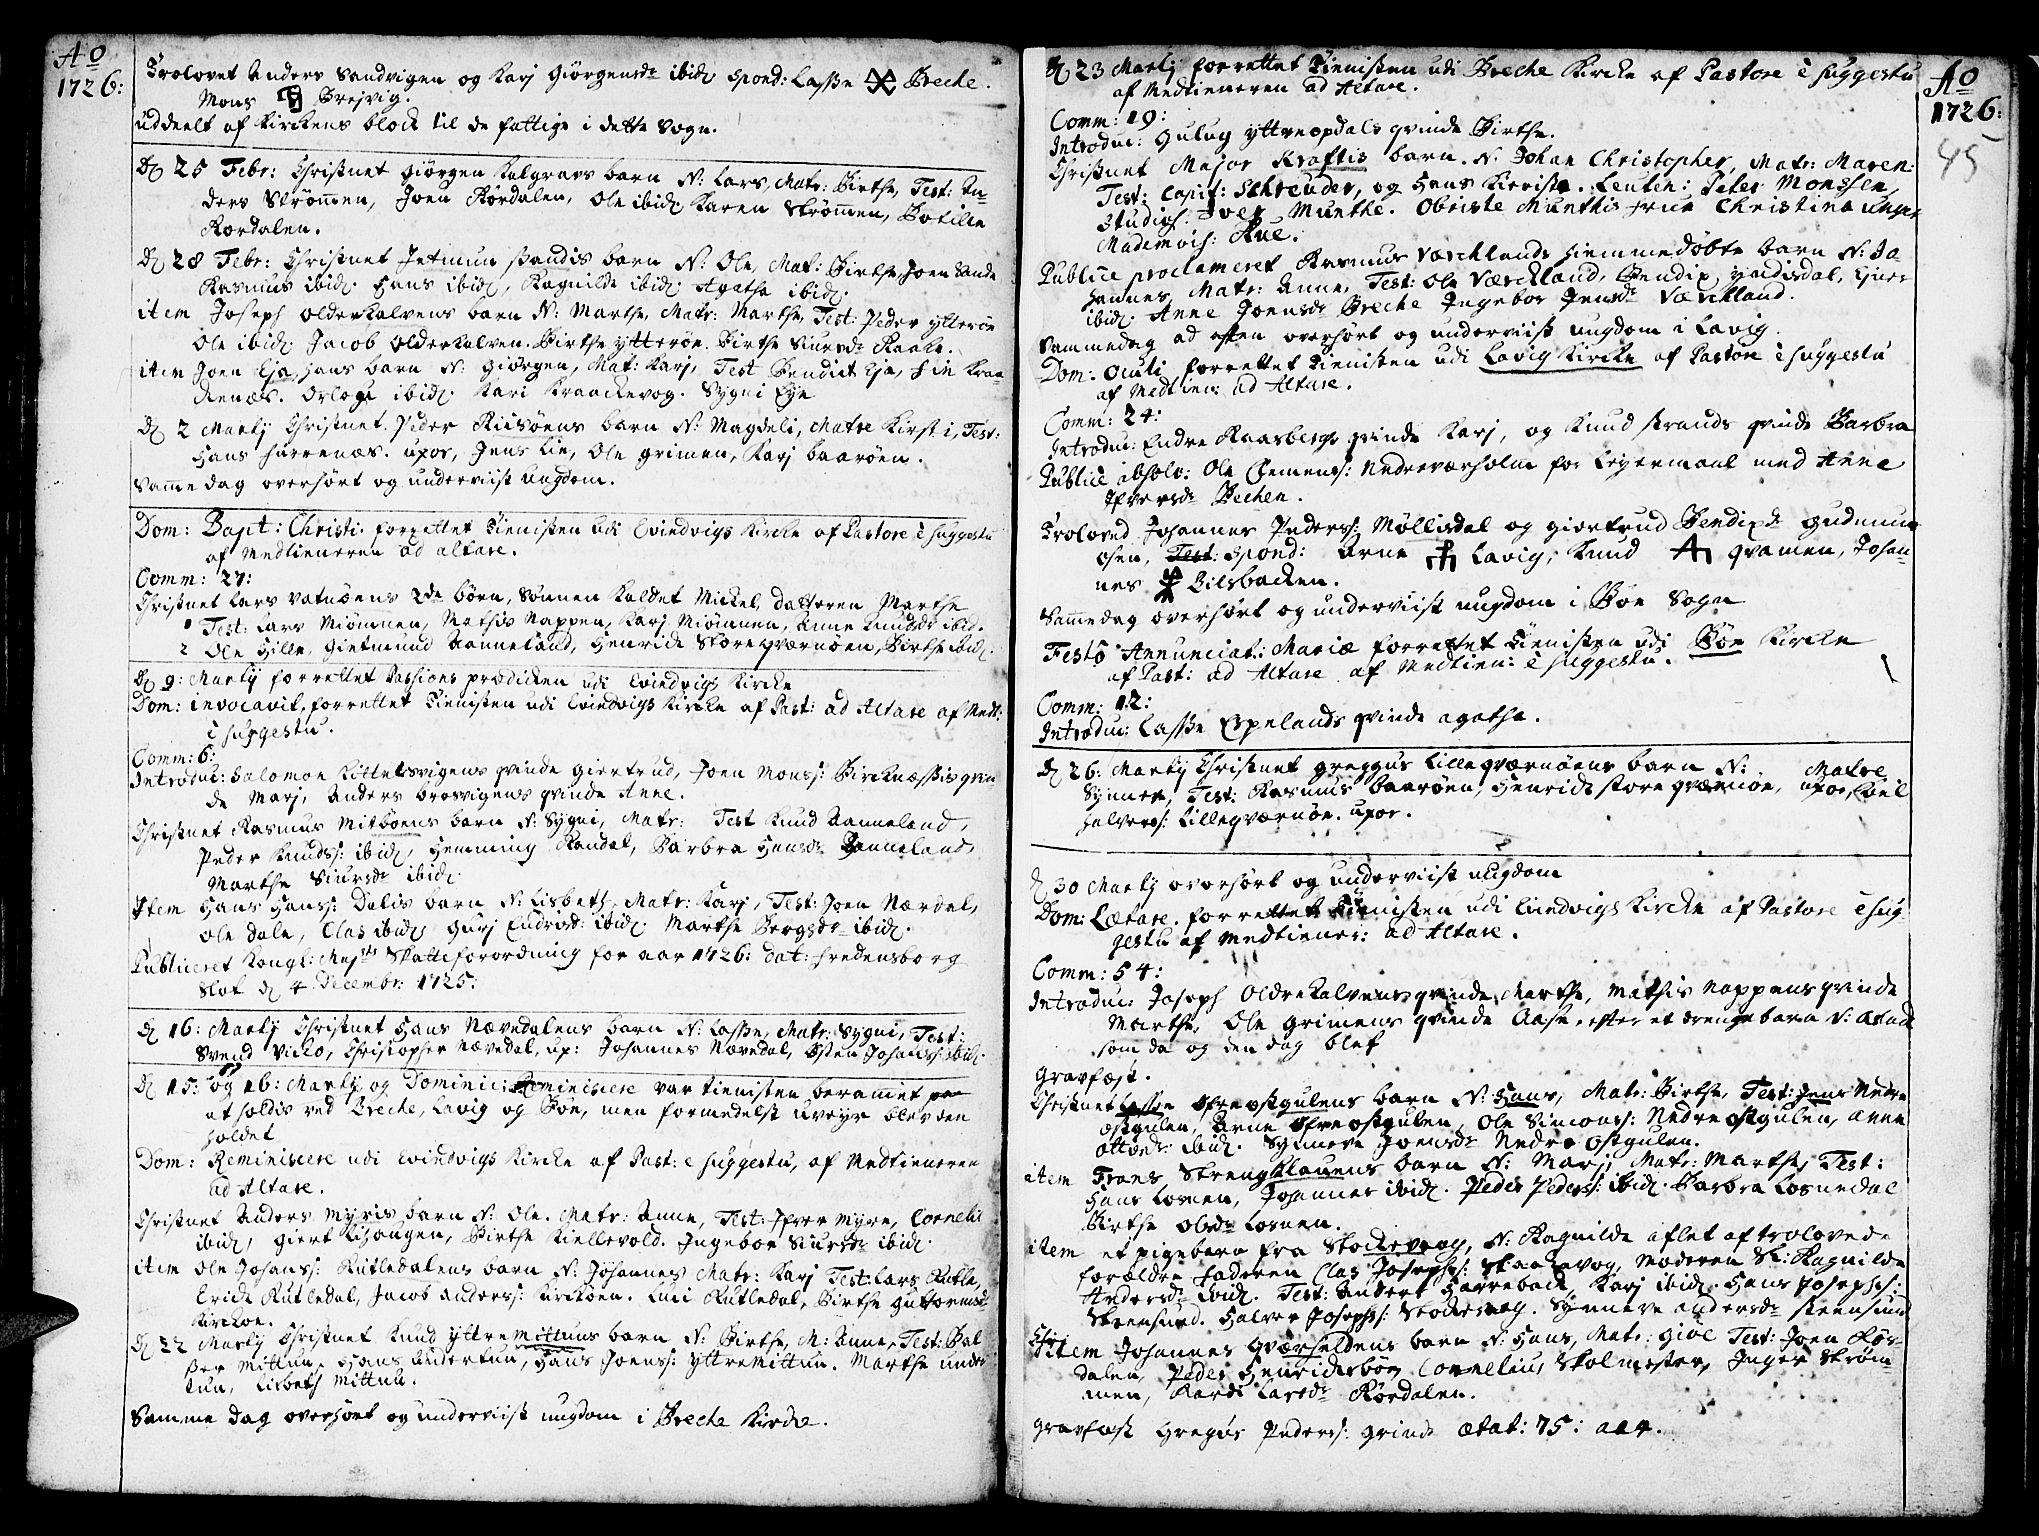 Ao
1726:
Trolovet Anders Sandvigen og Karj Giörgensdr ibid. spond: Lasse Breche.
Mons Breivig.
uddeelt af Kirckens block til de fattige i dette Sogn.
D 25 Febr: Christnet Giörgen Kalgravs barn N: Lars, Matr: Birthe, Test: An-
ders Strömmen, Joen Rördalen, Ole ibid. Karen Strömmen, Botille
Rördalen.
D 28 Febr: Christnet Jetmun Sandis barn N: Ole, Mat: Birthe, Joen Sande
Rasmus ibid. Hans ibid, Ragnilde ibid. Agathe ibid.
item Joseph Olderkalvens barn N: Marthe, Matr: Marthe, Test: Peder ytterøe
Ole ibid. Jacob Olderkalven. Birthe ytterøn. Birthe Siursdr Raake.
item Joen Eja, hans barn N: Giörgen, Mat: Karj, Test Bendict Eja, Fin Kraa-
kenæs. Orloge ibid. Kari Kraackevog. Sygni Eye
D 2 Martj Christnet Peder Riisöens barn N: Magdeli, Matre Kirsti, Test:
Hans furrenæs. uxor, Jens Lie, Ole grimen, Karj baaröen.
Samme dag overhört og underviist ungdom.
Dom: Bapt: Christi: forrettet Tienisten udi Evindvigs Kircke af Pastore è suggestu
af Medtieneren ad altare.
Comm: 27:
Christnet Lars Vatnöens 2de börn, Sönnen kaldet Mickel, datteren Marthe
1 Test: Lars Miömnen, Mathis Nappen, Karj Miömnen, Anne Knudsdr ibid.
2 Ole Hille, Gietmund Ranneland, Henrich Storeqværnöen, Birthe ibid.
D 9: Martj forrettet Passions prædicken udi Evindvigs Kircke
Dom: invocavit, forrettet Tienisten udi Evindvigs Kircke af Past: ad Altare af Medt:
è suggestu.
Comm: 6:
Introduc: Salomon Kittelsvigens qvinde Giertrud, Joen Monss: Bircknæssis qvin
de Marj, Anders brosvigens qvinde Anne.
Christnet Rasmus Mitböens barn N: Sygni, Matr: Test Knud Ranneland,
Peder Knuds: ibid, Hemming Randal, Barbra Hansdr Ranneland,
Marthe Siursdr ibid.
Item Hans Hanss: Dalis barn N: Lisbeth, Matr: Karj, Test: Joen Nærdal,
Ole Dale, Clas ibid, Gurj Endrisd: ibid. Marthe Bergsdr ibid.
Publiceret Kongl: Majts Skatteforordning for aar 1726: dat: Fredensborg
Slot d 4 Decembr: 1725:
D 16: Martj Christnet Hans Nævedalens barn N: Lasse, Matr: Sygni, Test:
Svend Vicko, Christopher Nævedal, ux: Johannes Nævedal, Osten Johanss: ibid.
D 15: og 16: Martj og Dominic: Reminiscere var tienisten berammet
at holdis ved Breche, Lavig og Böe, men formedelst uveyr blev den
holdet
Dom: Reminiscere udi Evindvigs Kircke af Past: è suggestu, af Medtieneren
ad Altare.
Christnet Anders Myris barn N: Ole. Matr: Anne, Test: Iffver Myre, Cornelii
ibid, Giert Kihougen, Birthe Kiellevold. Ingebor Siursdr ibid.
item Ole Johanss: Rutledalens barn N: Johannes Matr: Karj Test: Lars Rutle,
Erich Rutledal, Jacob Anderss: Kirköen. Luci Rutledal, Birthe Guttormsd
Kirkoe.
D 22 Martj Christnet Knud yttremittuns barn N: Birthe, M: Anne, Test: Bal
ser Mittun, Hans Undertun, Hans Joenss: yttremittun. Marthe under
tun, Lisbeth Mittun.
Samme dag overhört og underviist ungdom i Breche Kircke.
D 23 Martj forrettet Tienisten udi Breche Kircke af Pastore è suggestu
af Medtieneren ad Altare.
Comm: 19:
Introduc: Gulug yttreopdals qvinde Birthe.
Christnet Major Kraftis barn. N: Johan Christopher, Matr: Maren:
Test: Capit: Schreuder, og Leuten: Peter Monssen,
Studios: Iver Munthe. Obriste Munthis frue Christina unger
Mademois: Rue.
Publice proclameret Rasmus Værcklands hiemmedöbte barn N: Jo-
hannes, Matr: Anne, Test: Ole Værckland, Bendix yndisdal, Iver
ibid. Anne Joensdr Breche Ingebor Jensdr Værckland.
Sammedag ad aften overhört og underviist ungdom i Lavig.
Dom: Oculi forrettet Tienisten udi Lavig Kircke af Pastore è suggestu
af Medtien: ad Altare.
Comm: 24:
Introduc: Endre Raasbergs qvinde Karj, og Knud Strands qvinde Barbra
Publice absolv: Ole Clemenss: Nedreværholm for Leyermaal med Anne
Iffversdr Bechen.
Troloved Johannes Pederss: Möllisdal og giertrud Bendixdr Gudmun
osen, Test: spond: Arne Lavig, Knud qvamen, Johan-
nes Bilsbacken.
Sammedag overhört og underviist ungdom i Böe Sogn
Festo Annunciat: Mariæ forrettet Tienisten udi Böe Kircke
af Past: ad Altare af Medtien: è suggestu.
Comm: 12:
Introduc: Lasse Espelands qvinde agathe.
D 26: Martj Christnet greggus Lilleqværnöens barn N: Matre
Synneve, Test: Rasmus baaröen, Henrich storeqværnöe, uxor, Niel
halvers: Lilleqværnöe. uxor.
D 30 Martj overhört og underviist ungdom
Dom: Lætare. forrettet Tienisten udi Evindvigs Kircke af Pastore è sug
gestu af Medtiener: ad Altare.
Comm: 54:
Introduc: Joseph Oldrekalvens qvinde Marthe, Mathis Nappens qvinde
Marthe, Ole Grimens qvinde Aase, efter et drenge barn N:
som da og den dag blef
gravfæst.
Christnet Lasse Öfreostgulens barn N: Hans, Matr: Birthe, Test: Jens Nedre
ostgulen, Arne Öfreostgulen, Ole Simonss: Nedre ostgulen, Anne
Ottosdr ibid. Synneve Joensdr Nedre ostgulen.
item Frans Strengklauens barn N: Marj, Matr: Marthe, Test:
Hans Losnen, Johannes ibid. Peder Pederss: ibid. Barbra Losnedal
Birthe Olsdr Losnen.
item et pigebarn fra Stockevaag, N: Ragnilde aflet af trolovede
forældre faderen Clas Josephs: Skaackevog, Moderen Sl: Ragnilde
Andersdr ibid. Test: Anders Harreback, Karj ibid. Hans Josephs:
Steensund. Halver Josephs: Stockevog. Synneve Andersdr Steensund
item Johannes qværheldens barn N: Hans, Matr: Gioe Test: Joen Rör-
dalen, Peder Henriksböe Cornelius, Skolmester, Inger Ström
men, Karcti Larsdr Rördalen.
gravfæst Gregös Pederss: Grinde ætat: 75: aar.
Ao
1726:
45